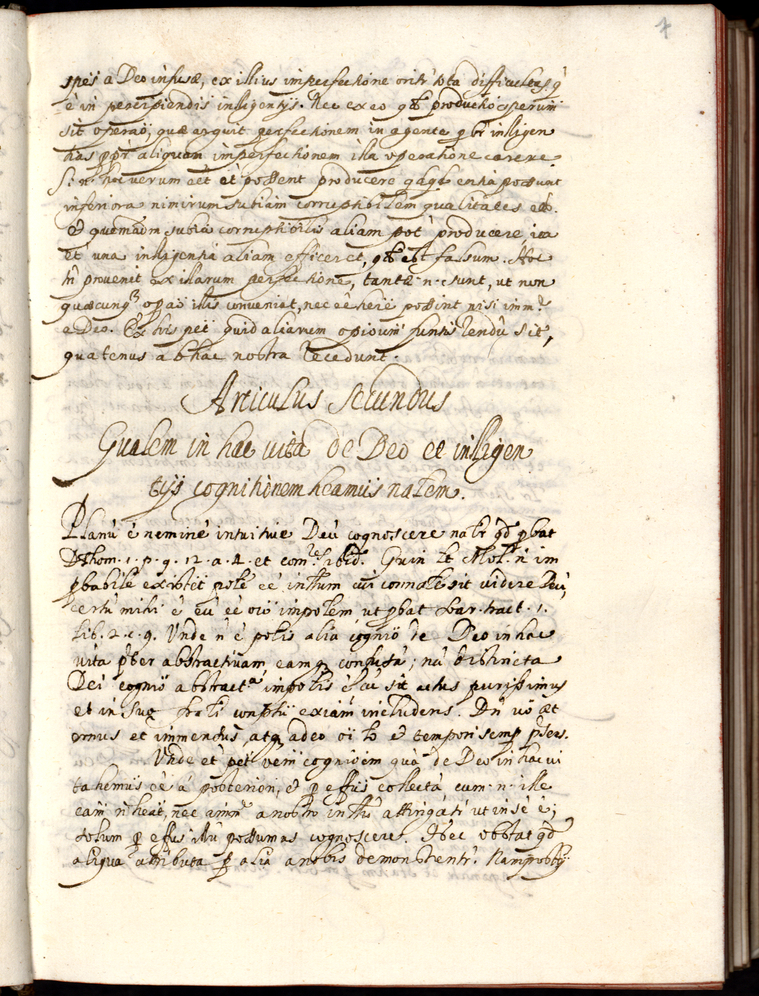 7
spes a Deo infusæ, ex illius imperfectione orit' tota difficultas q'
è in percipiendis intelligentijs. Nec ex eo qd productio rerum
sit operaõ, quæ arguit perfectionem in agente pbr intelligen
tias ppr aliquam imperfectionem illa operatione carere.
S. n. hoc verum eêt et possent producere entia possunt
inferiora nimirum subiam corruptibilem qualitates etc.
Et quemadm subia corruptibilis aliam pot producere ita
et una intelligentia aliam efficeret, qd est falsum. Hoc
tñ provenit ex illarum perfectione, tantæ .n. sunt, ut non
quæcunq opaõ illis conveniat, nec eê here possint nisi imm.e
a Deo. Ex his pet quid aliarum opioium sentiendũ sit,
quatenus ab hac nostra recedunt.
Articulus secundus
Qualem in hac vita de Deo et intelligen
tijs cognitionem heamus nalem.
Planũ è neminẽ intuitive Deũ cognoscere nalr qd pbat
D Thom. 1. p. q. 12. a. 4. et com.res ibid. Quin et Mol. n im
pbabile existet pole eê intellum cui connale sit videre Deũ,
certũ mihi è eũ eê oiõ impolem, ut pbat tract. 1.
lib. 2. c. 9. Unde n è polis alia cogniõ de Deo in hac
vita pter abstractivam eamq confusã; nã distincta
Dei cogniõ abstract.a impolis è cũ sit actus purissimus
et in suo exiãm includens. Dñ uo æt
ernus et immensus atq adeo oi lo et tempori semp pñs.
Unde et pet veñi cognioem quã de Deo in hac vi
ta hemus eê a posteriori, et p effus collectã cum .n. ille
cãm n heat, nec aĩm a nobro intllũ attingati ut in se è;
solum p effus illũ possumus cognoscere. Nec obstat qd
aliqua attributa p alia a nobis demonstrent'.